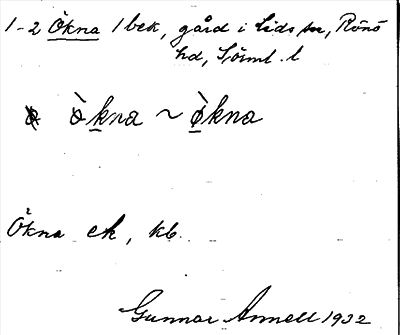 1-2 Ökna 1 bek, gård i Lids sn, Rönö
hd, Söml. l
òkna ~ ø̀kna
Ökna ek, kb.
Gunnar Annell 1932